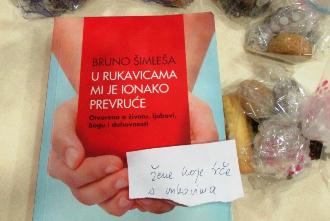 BRUNO ŠIMLEŠA
U RUKAVICAMA
MI JE IONAKO
PREVRUĆE
Otvoreno o životu, ljubavi,
Bogu i duhovnosti
žene koje trče
s vukovima